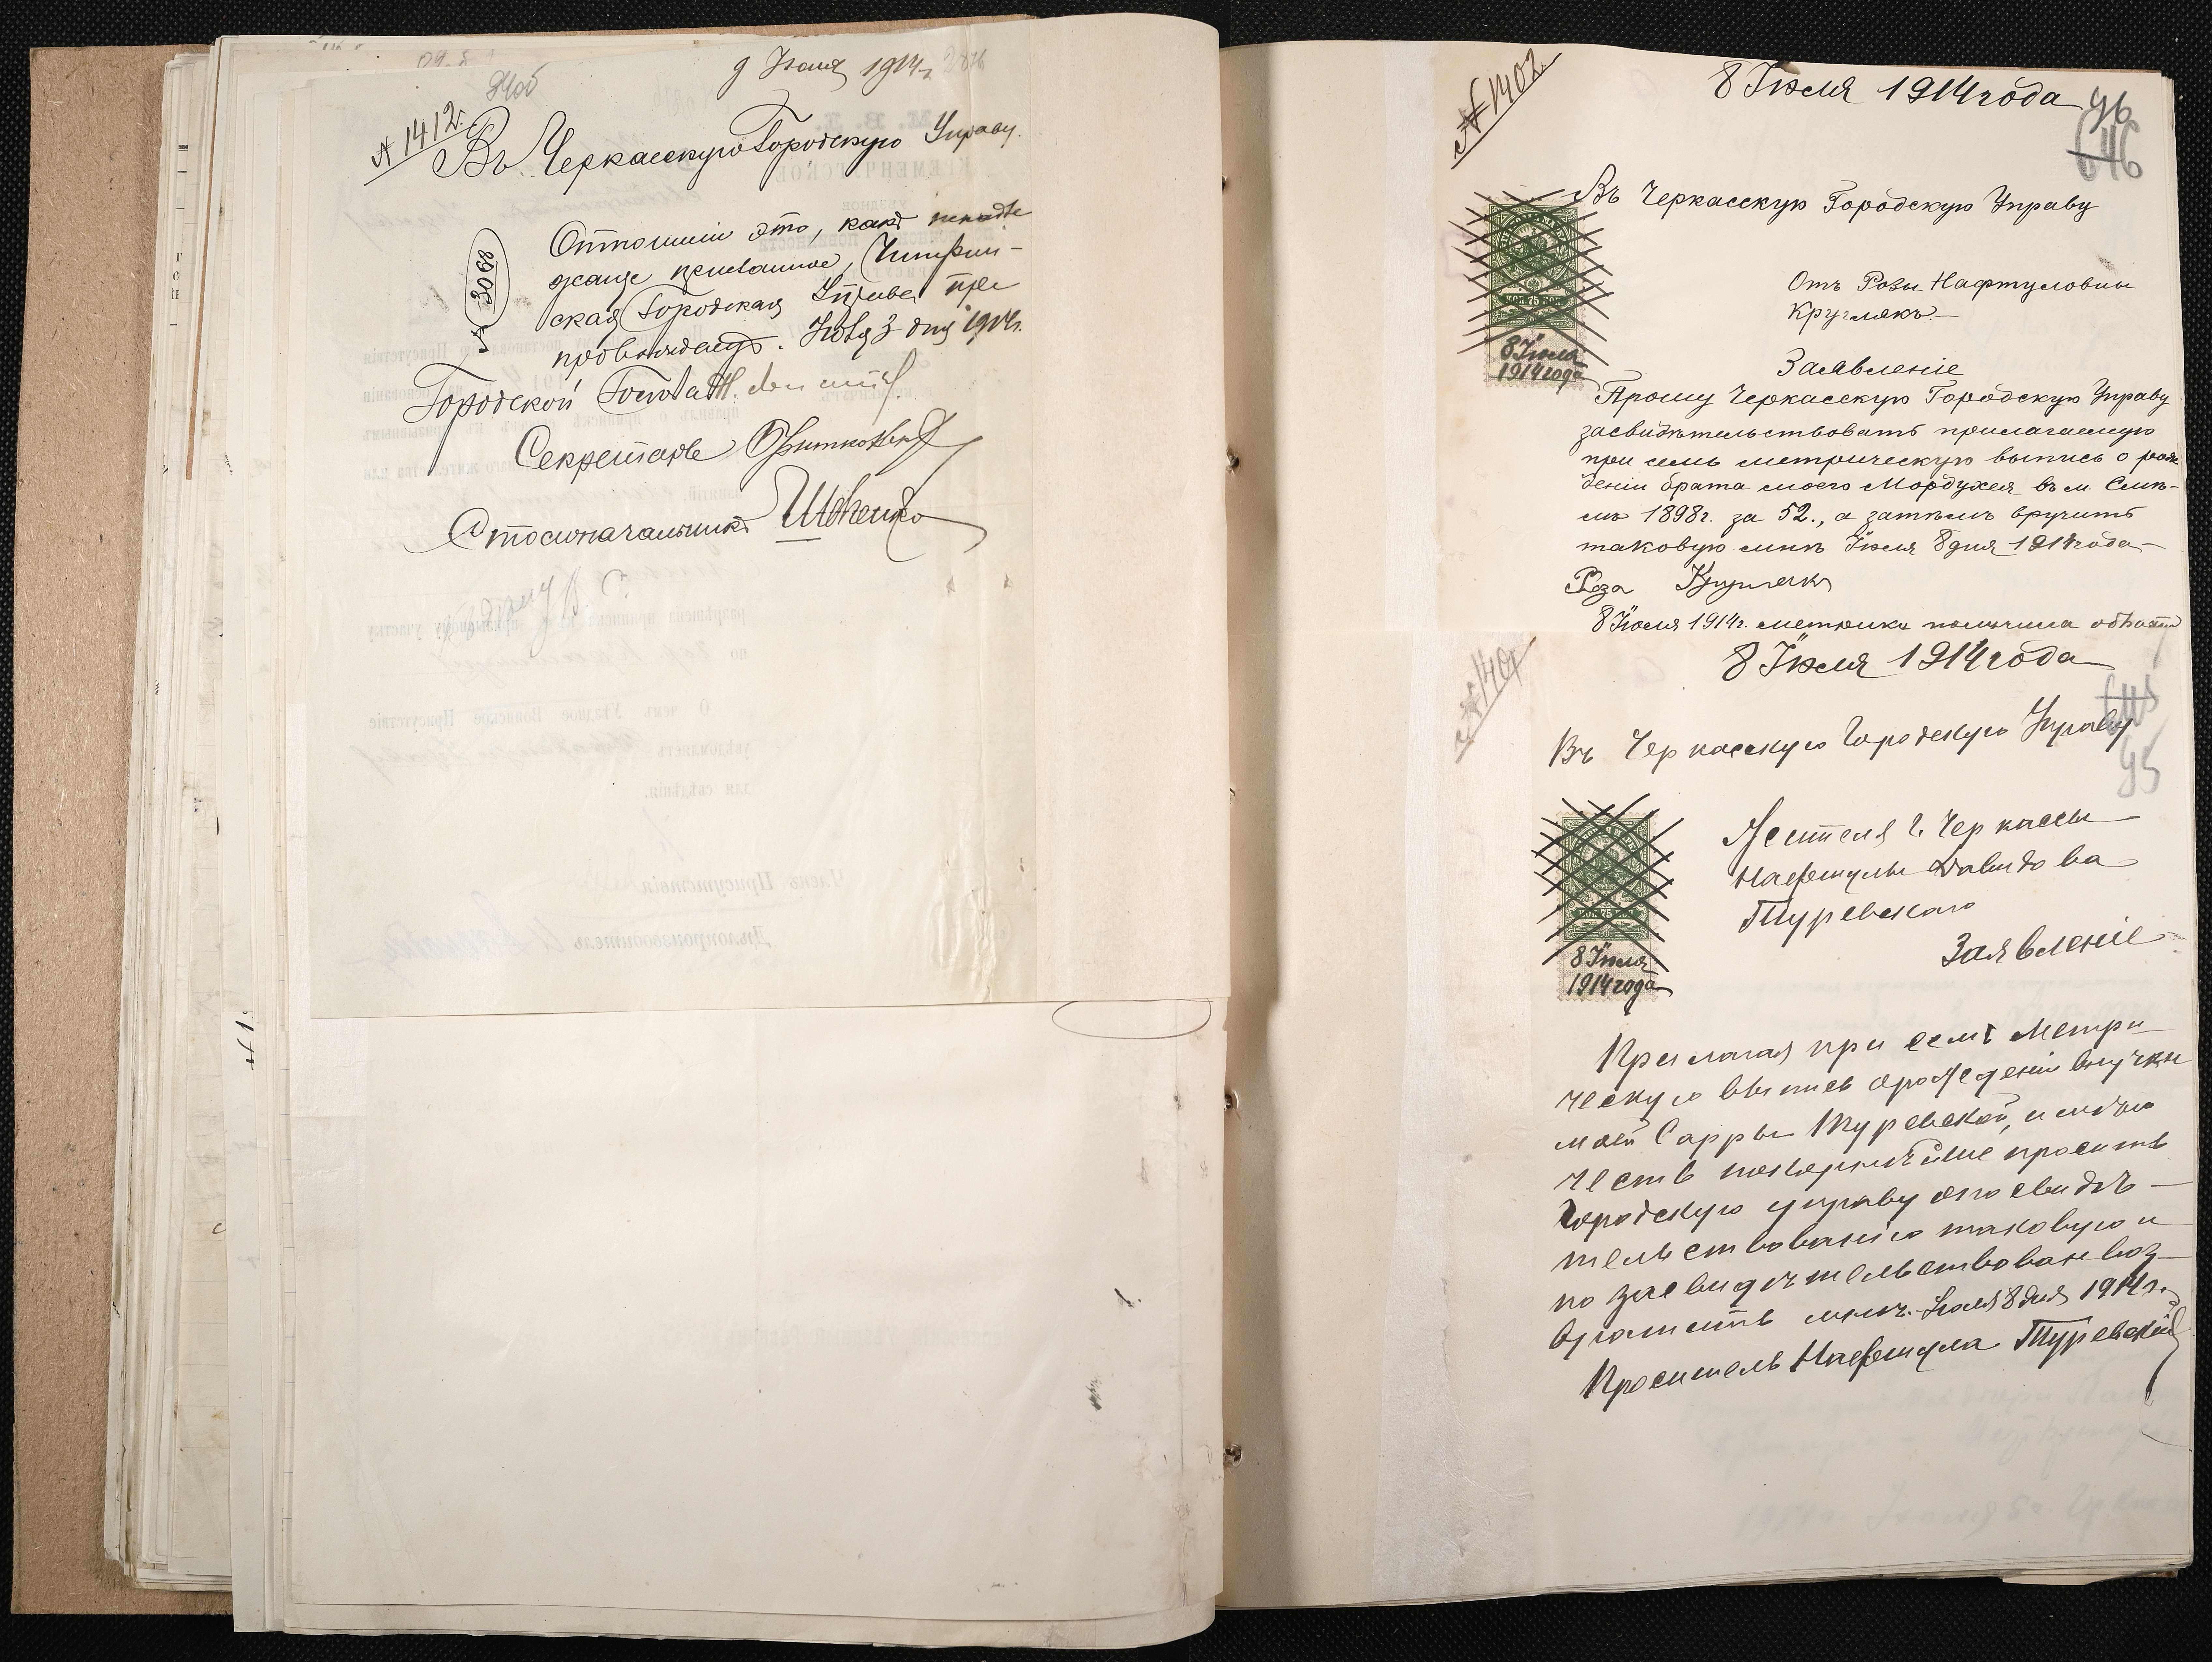 9 Іюля 1914 г.
№ 1412.
Въ Черкасскую Городскую Управу.
№ 3068
Отношеніе это, какъ
, Чигирин-
ская Городская Управа пре
провождаетъ. Іюля 3 дня 1914 г.
Городской Голова
Секретарь
Столоначальникъ Шевченко
№ 1402.
8 Іюля 1914 года
96
646
Въ Черкасскую Городскую Управу
Отъ Розы Нафтуловны
Круглякъ
КОП. 75 КОП.
8 Іюля
1914 года
Заявленіе
Прошу Черкасскую Городскую Управу
засвидѣтельствовать прилагаемую
при семъ метрическую выпись о рож
деніи брата моего Мордухея въ м. Смѣ-
лѣ 1898 г. за 52., а затѣмъ вручить
таковую мнѣ Іюля 8 дня 1914 года
Роза Круглякъ
8 Іюля 1914 г. метрику получила обратно
№ 1401
8 Іюля 1914 года
645
95
Въ Черкасскую Городскую Управу
Жителя г. Черкассы
Нафтулы Давидова
Туревскаго
Заявленіе
КОП. 75 КОП.
8 Іюля
1914 года
Прилагая при семъ метри
ческую выпись о рожденіи внучки
моей Сарры Туревской, имѣю
честь покорнѣйше просить
Городскую управу о посвидѣ-
тельствованію таковую и
по засвидѣтельствованіе воз-
вратить мнѣ. Іюля 8 дня 1914 г.
Проситель Нафтула Туревскій